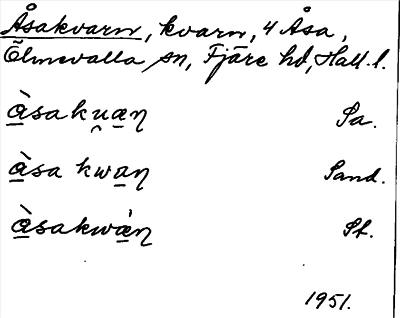 Åsakvarn, kvarn, 4 Åsa,
Ölmevalla sn, Fjäre hd, Hall. l.
à̲saku̯a̲ɳ Sa.
à̲sa kwa̲ɳ Sand.
à̲sakwà̲ɳ St.
1951.